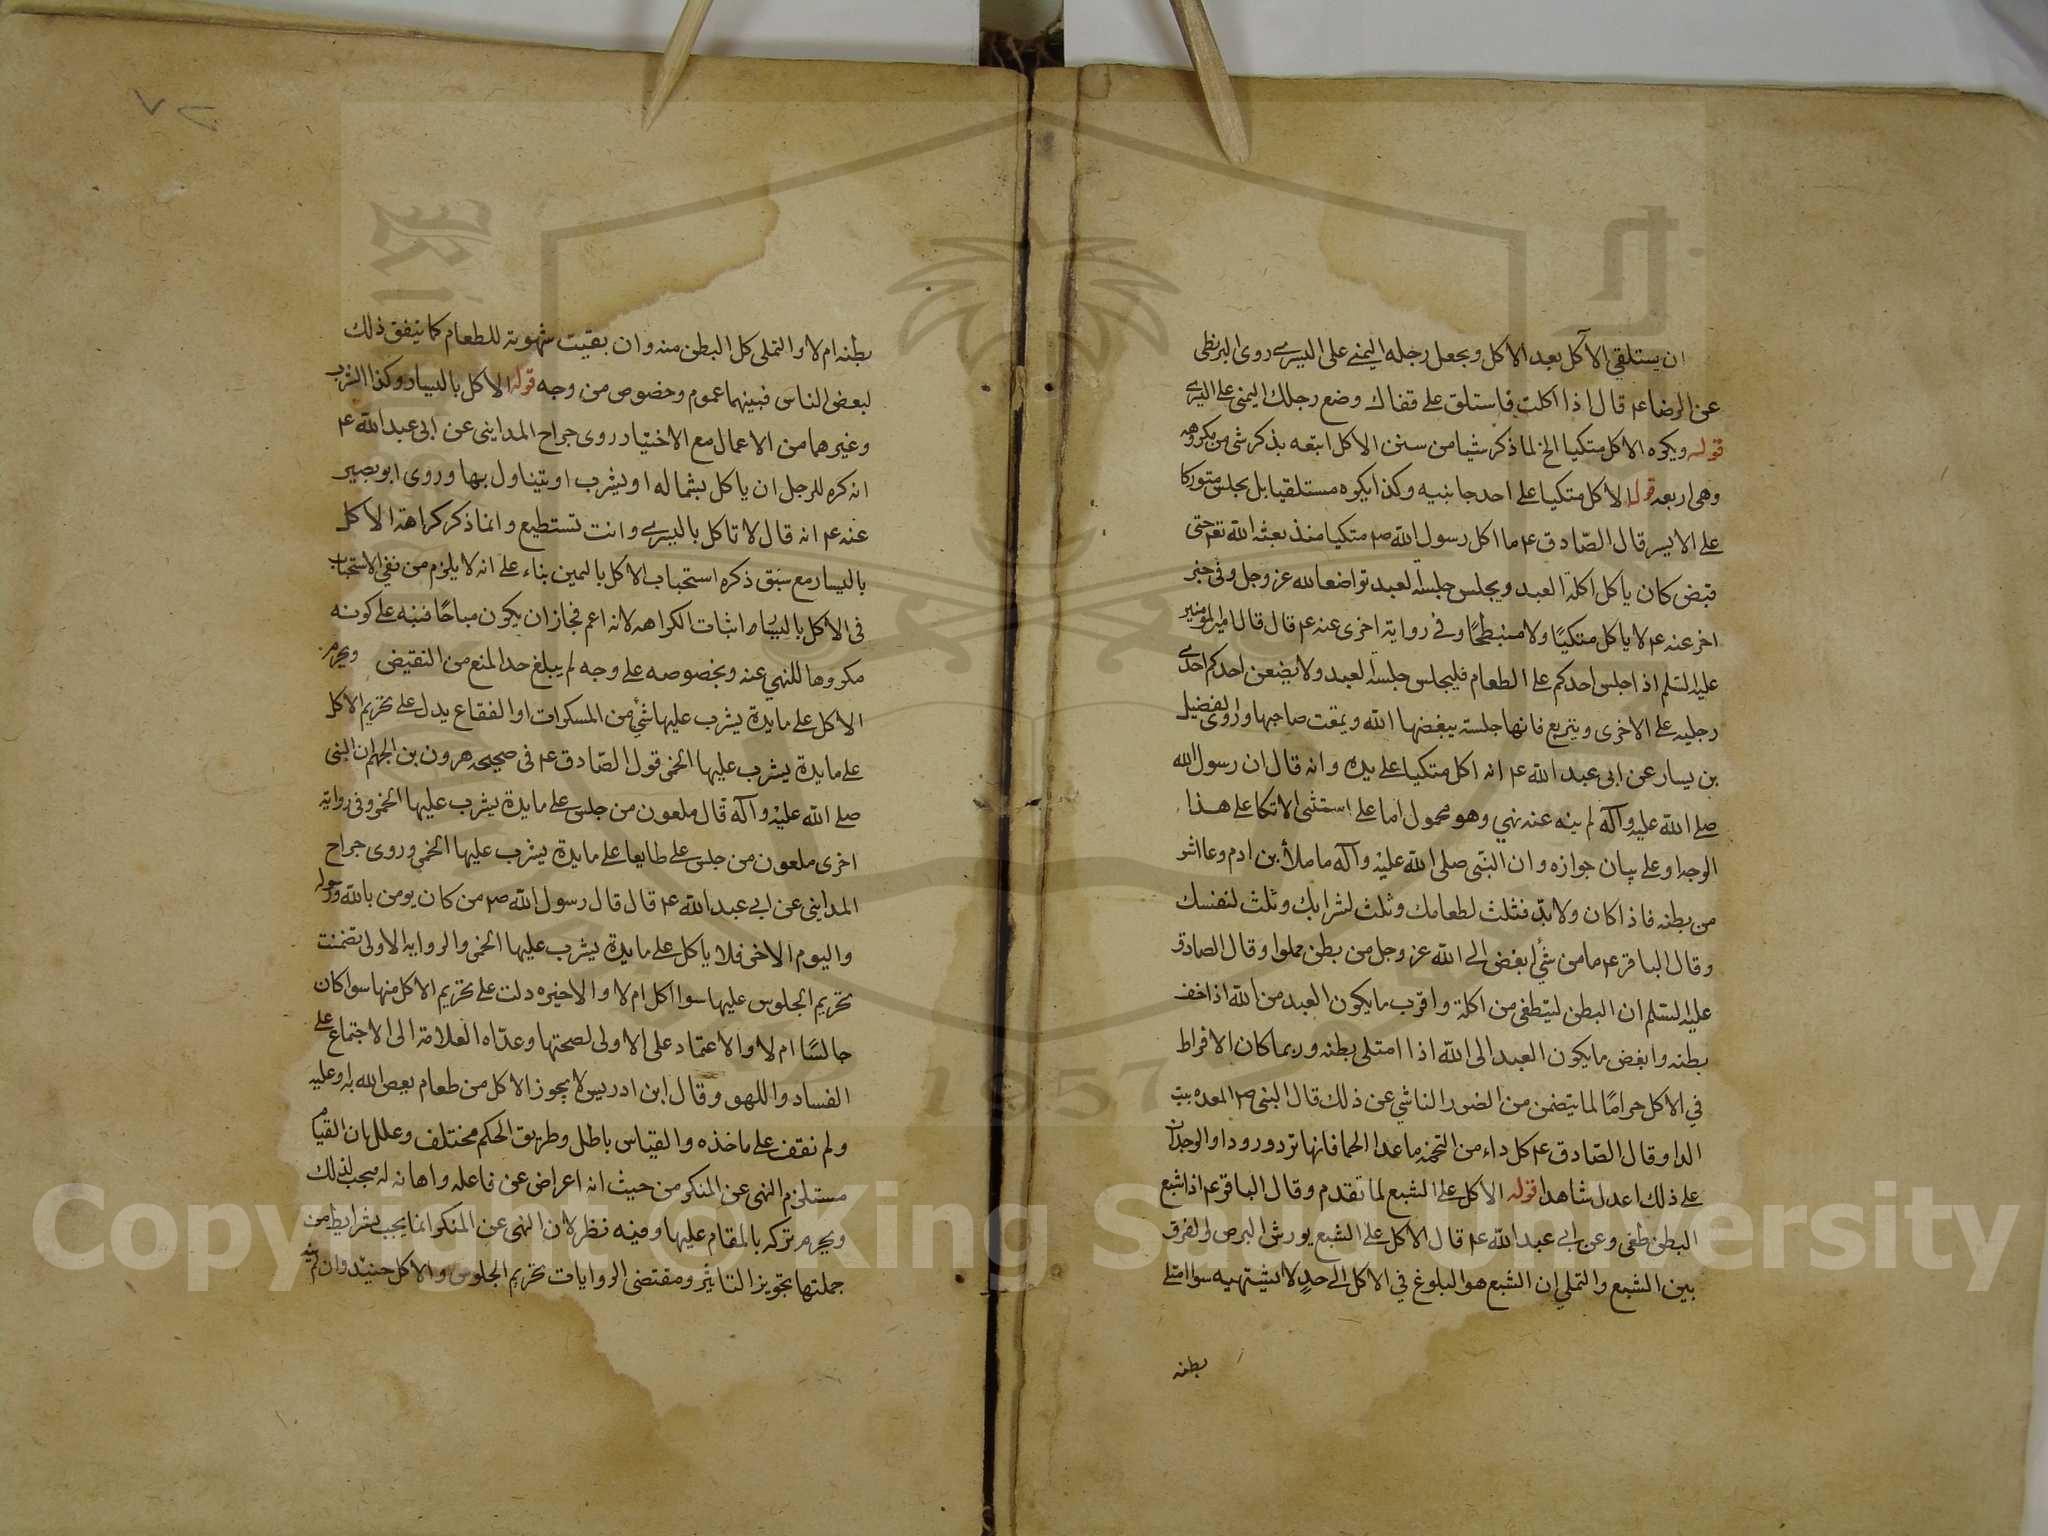 ان يستلقي الآكل بعد الاكل ويجعل رجله اليمنى على اليسرى روى البزنطي
عن الرضا ع قال اذا اكلت فاستلق على قفاك وضع رجلك اليمنى على اليسرى
قوله ويكره الاكل متكيا الخ لما ذكر شيا من سنن الاكل اتبعه بذكر شي من مكروهه
وهي اربعه قوله الاكل متكيا على احد جانبيه وكذا يكره مستلقيا بل يجلس متوركا
على الايسر قال الصادق ع ما اكل رسول الله ص متكيا منذ بعثه الله تع حتى
قبض كان ياكل اكلة العبد ويجلس جلسة العبد تواضعا لله عز وجل وفي خبر
اخر عنه ع لا ياكل متكيًا ولا منبطحًا وفي رواية اخرى عنه ع قال قال امير المومنين
عليه السلم اذا جلس احدكم على الطعام فليجلس جلسة العبد ولا يضعن احدكم احدى
رجليه على الاخرى ويتربع فانها جلسة يبغضها الله ويمقت صاحبها وروى الفضيل
بن يسار عن ابي عبد الله ع انه اكل متكيا على يده وانه قال ان رسول الله
صلى الله عليه وآله لم ينه عنه نهي وهو محمول اما على استثنى الاتكا على هذا
الوجه او على بيان جوازه وان النبي صلى الله عليه وآله ما ملأ بن ادم وعا اشر
من بطنه فاذا كان ولا بد فثلث لطعامك وثلث لشرابك وثلث لنفسك
وقال الباقر ع ما من شي أبغض الى الله عز وجل من بطن مملوا وقال الصادق
عليه السلم ان البطن ليطغى من اكلة واقرب ما يكون العبد من الله اذا خف
بطنه وابغض ما يكون العبد الى الله اذا امتلى بطنه وربما كان الافراط
في الاكل حرامًا لما يتضمن من الضرر الناشي عن ذلك قال النبي ص المعده بيت
الدا وقال الصادق ع كل داء من التخمة ما عدا الحما فانها ترد ورودا والوجدان
على ذلك اعدل شاهدا قوله الاكل على الشبع لما تقدم وقال الباقر ع اذا شبع
البطن طغى وعن ابي عبد الله ع قال الاكل على الشبع يورث البرص والفرق
بين الشبع والتملي ان الشبع هو البلوغ في الاكل الى حدٍ لا يشتهيه سوا امتلى
بطنه
بطنه ام لا والتملى كل البطن منه وان بقيت شهوته للطعام كما يتفق ذلك
لبعض الناس فبينهما عموم وخصوص من وجه قوله الاكل باليسار وكذا الشرب
وغيرهما من الاعمال مع الاختيار روى جراح المدايني عن ابي عبد الله ع
انه كره للرجل ان ياكل بشماله او يشرب او يتناول بها وروى ابو بصير
عنه ع انه قال لا تاكل باليسرى وانت تستطيع وانما ذكر كراهة الاكل
باليسار مع سبق ذكره استحباب الاكل باليمين بناء على انه لا يلزم من نفي الاستحباب
في الاكل باليسار اثبات الكراهه لانه اعم فجاز ان يكون مباحًا فنبه على كونه
مكروها للنهي عنه وبخصوصه على وجه لم يبلغ حد المنع من النقيض ويحرم
الاكل على مايدة يشرب عليها شي من المسكرات او الفقاع يدل على تحريم الاكل
على مايدة يشرب عليها الخمر قول الصادق ع في صحيحه هرون بن الجهم ان النبي
صلى الله عليه وآله قال ملعون من جلس على مايدة يشرب عليها الخمر وفي رواية
اخرى ملعون من جلس على طايعا على مايدة يشرب عليها الخمر وروى جراح
المدايني عن ابي عبد الله ع قال قال رسول الله ص من كان يومن بالله ورسوله
واليوم الاخر فلا ياكل على مايدة يشرب عليها الخمر والرواية الاولى تضمنت
تحريم الجلوس عليها سوا اكل ام لا والاخيره دلت على تحريم الاكل منها سوا كان
جالسًا ام لا والاعتماد على الاولى لصحتها وعداه العلامة الى الاجتماع على
الفساد واللهو وقال ابن ادريس لا يجوز الاكل من طعام يعصى الله به او عليه
ولم نقف على ماخذه والقياس باطل وطريق الحكم مختلف وعلل بان القيام
مستلزم النهي عن المنكر من حيث انه اعراض عن فاعله واهانه له فيجب لذلك
ويحرم تركه بالمقام عليها وفيه نظر لان النهي عن المنكر انما يجب بشرايط من
جملتها تجويز التاثير ومقتضى الروايات تحريم الجلوس والاكل حينيذ وان لم
Copyright © King Saud University
1957